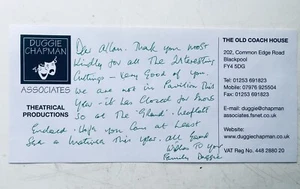 DUGGIE
CHAPMAN
ASSOCIATES
THEATRICAL
PRODUCTIONS
Dear Allan. Thank you most
Kindly for all the Interesting
Cuttings - Very Good of you.
We are not in Pavilion This
Year - it has Closed for Shows
So at The "Gland". Leaflets
Enclosed - Hope you Can at Least
See a Matinee This Year. All Good
Wishes To your
Family Duggie
THE OLD COACH HOUSE
202, Common Edge Road
Blackpool
FY4 5DG
Tel: 01253 691823
Mobile: 07976 925504
Fax: 01253 691823
E-mail: duggie@chapman
associates.fsnet.co.uk
Website:
www.duggiechapman.co.uk
VAT Reg No. 448 2880 20